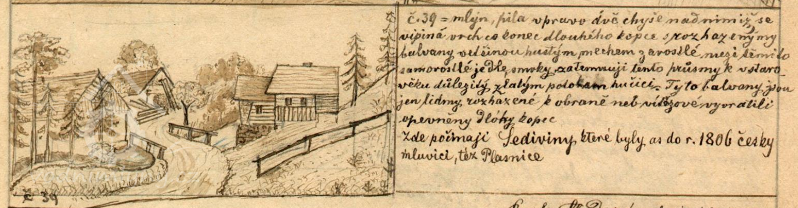 č. 39 = mlýn, pila vpravo dvě chyše nad nimiž se
vipíná vrch co konec dlouhého kopce s rozházenýmy
balvany vetšinou hustým mechem zarostlé, než těmito
samorostlé jedle, smrky zatemnují tento průsmyk v staro-
věku důležitý zlatým potokem hučící. Tyto balvany jsou
jen lidmy rozházené k obraně neb vítězové vyvrátili
opevněny dlohy kopec
Zde počínají Šediviny, které byly as do r. 1806 česky
mluvící, též Plasnice
č 39